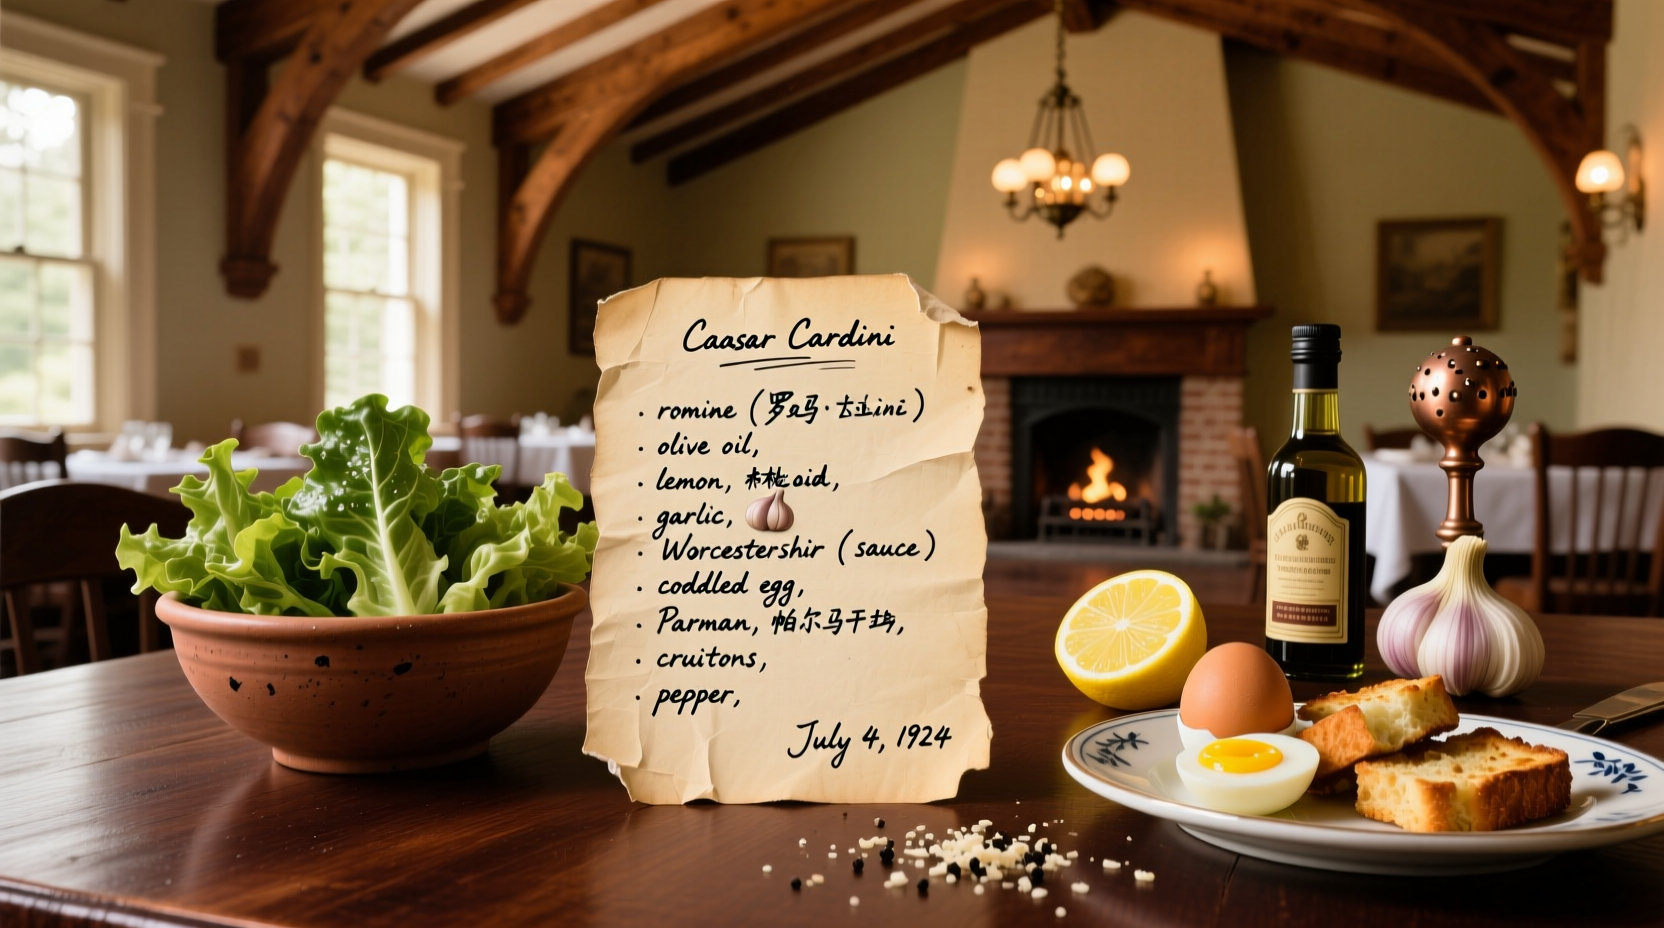 Caasar Cardini
· romine (罗马·
· olive oil,
· lemon, oid,
· garlic,
· Worcestershir (sauce)
· coddled egg,
· Parman, 帕尔马干
· cruitons,
· pepper,
July 4, 1924